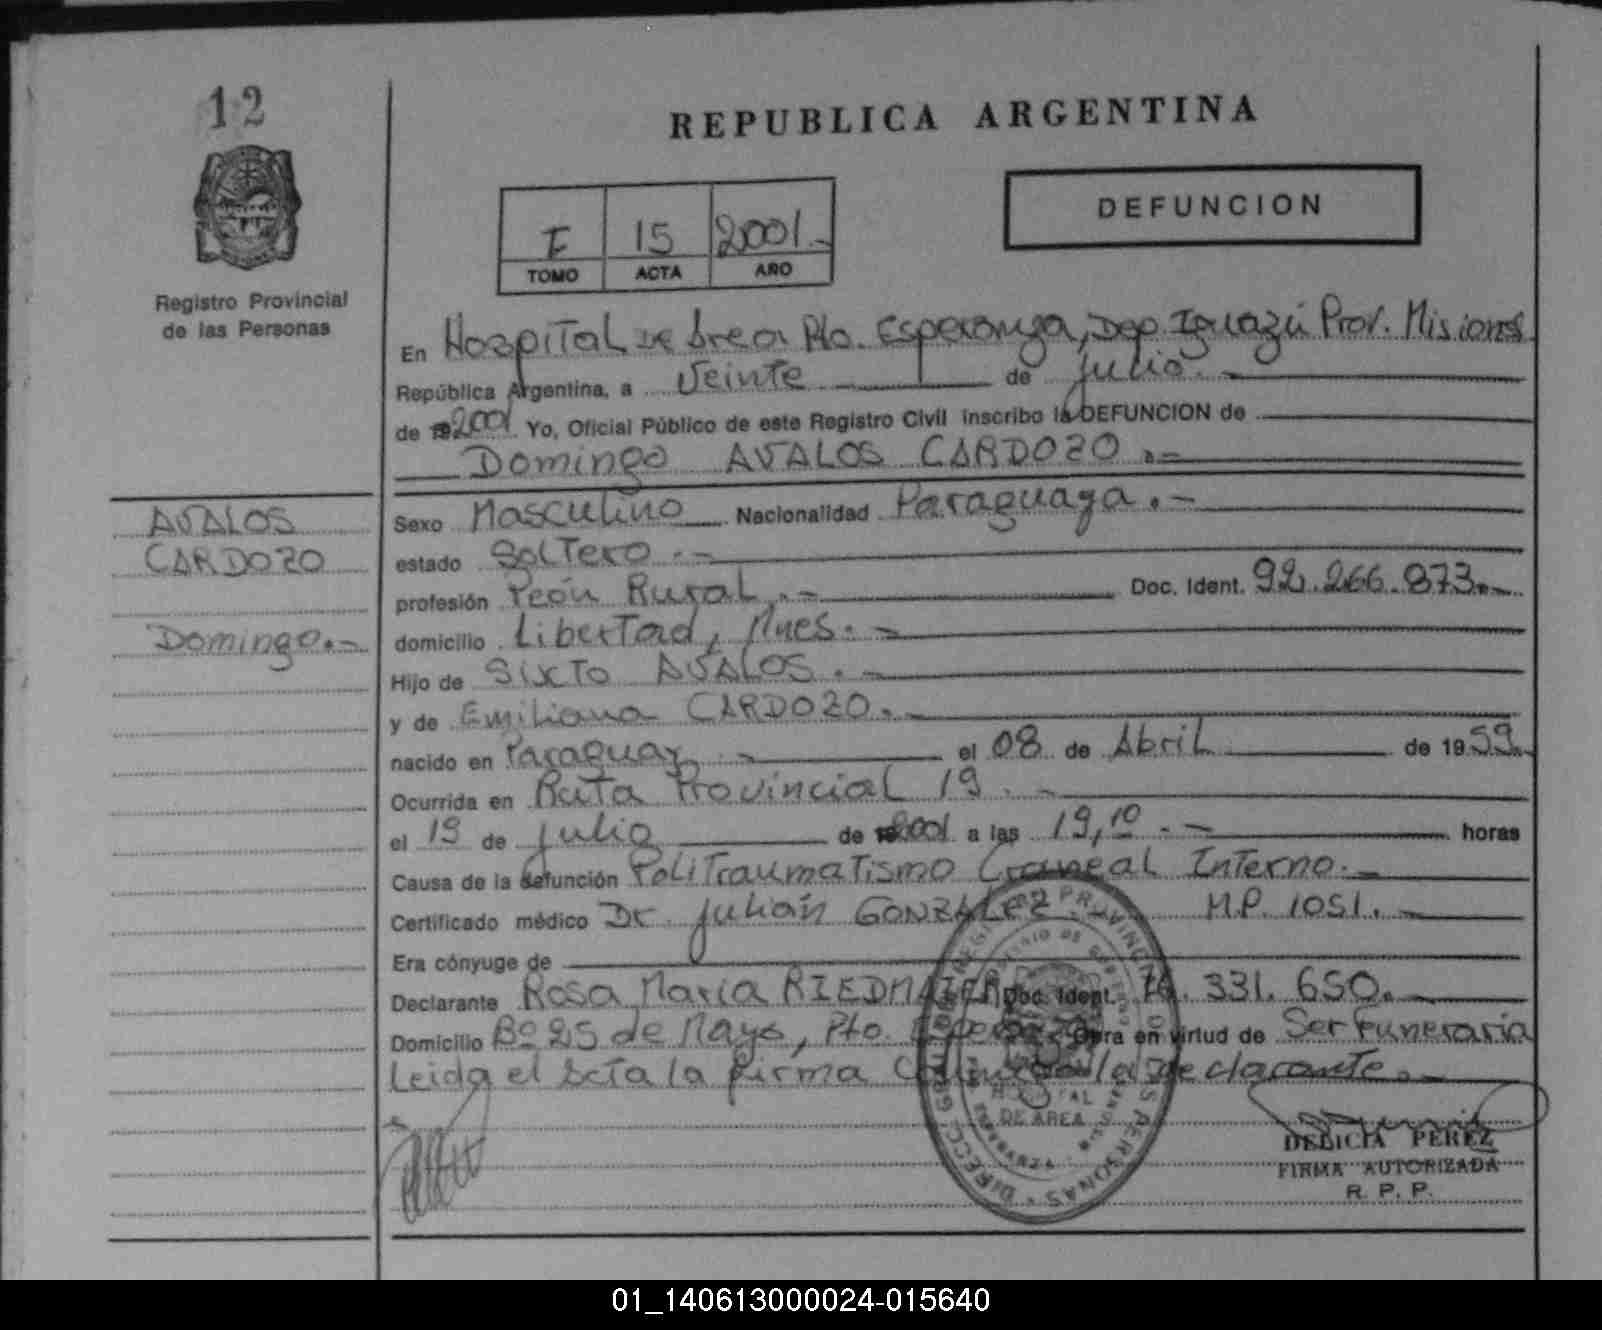 12
REPUBLICA ARGENTINA
DEFUNCION
I 15 2001.-
TOMO ACTA AÑO
Registro Provincial
de las Personas
En Hospital de Area Pto. Esperanza, Dep. Iguazú Prov. Misiones
República Argentina, a Veinte de julio.-
de 2001 Yo, Oficial Público de este Registro Civil inscribo la DEFUNCION de
Domingo AVALOS CARDOZO.-
AVALOS
CARDOZO
Domingo.-
Sexo Masculino Nacionalidad Paraguaya.-
estado Soltero.-
profesión Peón Rural.- Doc. Ident. 92.266.873.-
domicilio Libertad, Mnes.-
Hijo de Sixto AVALOS.-
y de Emiliana CARDOZO.-
nacido en Paraguay.- el 08 de Abril de 1959.-
Ocurrida en Ruta Provincial 19.-
el 19 de julio de 2001 a las 19,10.- horas
Causa de la defunción PoliTraumaTismo Craneal Interno.-
Certificado médico Dr. Julián GONZALEZ M.P. 1051.-
Era cónyuge de
Declarante Rosa María RIEDMAIER Doc. Ident. 331.650.-
Domicilio Bº 25 de Mayo, Pto. Esperanza Obra en virtud de Ser Funeraria
Leida el Acta la firma la Declarante.-
HOSPITAL
DE AREA
DELICIA PEREZ
FIRMA AUTORIZADA
R. P. P.
01_140613000024-015640